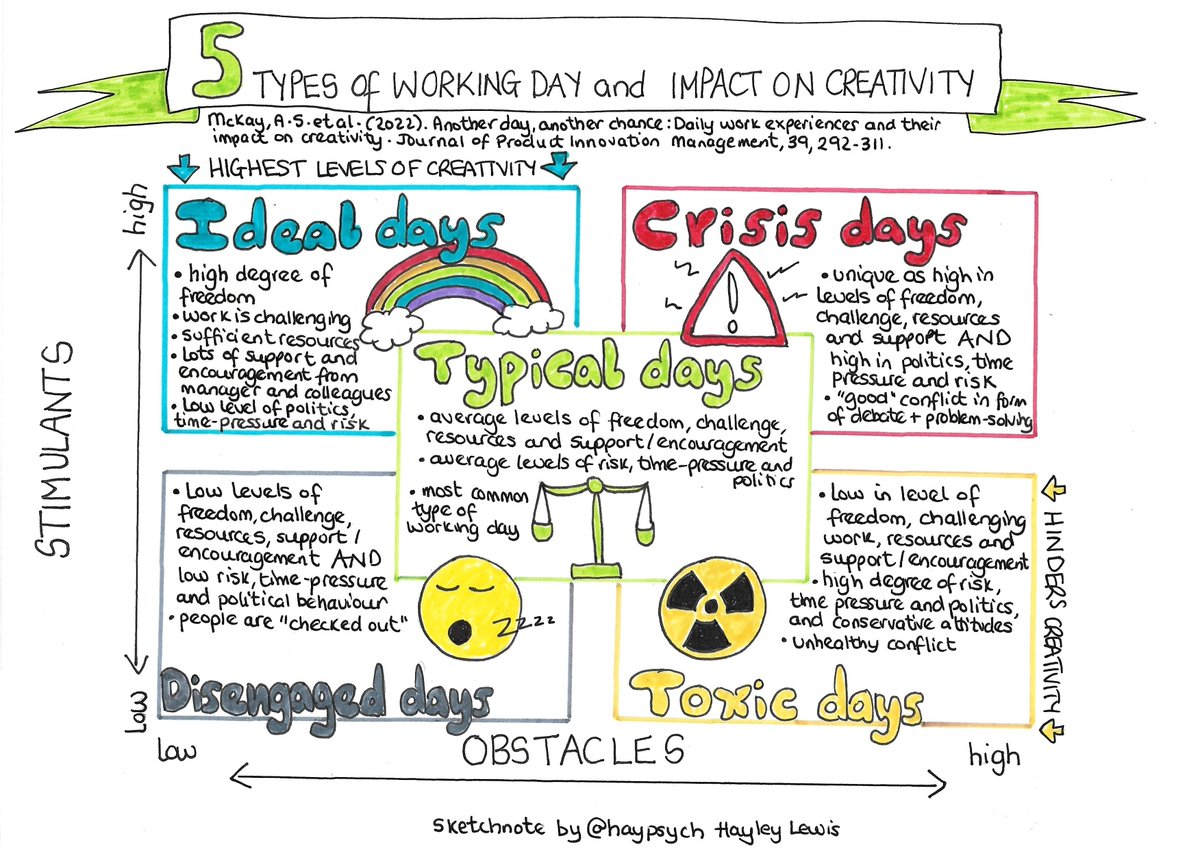 5 TYPES of WORKING DAY and IMPACT ON CREATIVITY
McKay, A.S. et al. (2022). Another day, another chance: Daily work experiences and their
impact on creativity. Journal of Product Innovation Management, 39, 292-311.
HIGHEST LEVELS OF CREATIVITY
STIMULANTS
high
low
Ideal days
• high degree of
freedom
• work is challenging
• sufficient resources
• Lots of support and
encouragement from
manager and colleagues
• Low level of politics,
time-pressure and risk
Crisis days
• unique as high in
levels of freedom,
challenge, resources
and support AND
high in politics, time
pressure and risk
• "good" conflict in form
of debate + problem-solving
Typical days
• average levels of freedom, challenge,
resources and support/encouragement
• average levels of risk, time-pressure and
politics
• most common
type of
working day
• Low levels of
freedom, challenge,
resources, support/
encouragement AND
low risk, time-pressure
and political behaviour
• people are "checked out"
zzzz
Disengaged days
• Low in level of
freedom, challenging
work, resources and
support/encouragement
• high degree of risk,
time pressure and politics,
and conservative attitudes
• unhealthy conflict
Toxic days
HINDERS CREATIVITY
low
OBSTACLES
high
Sketchnote by @haypsych Hayley Lewis